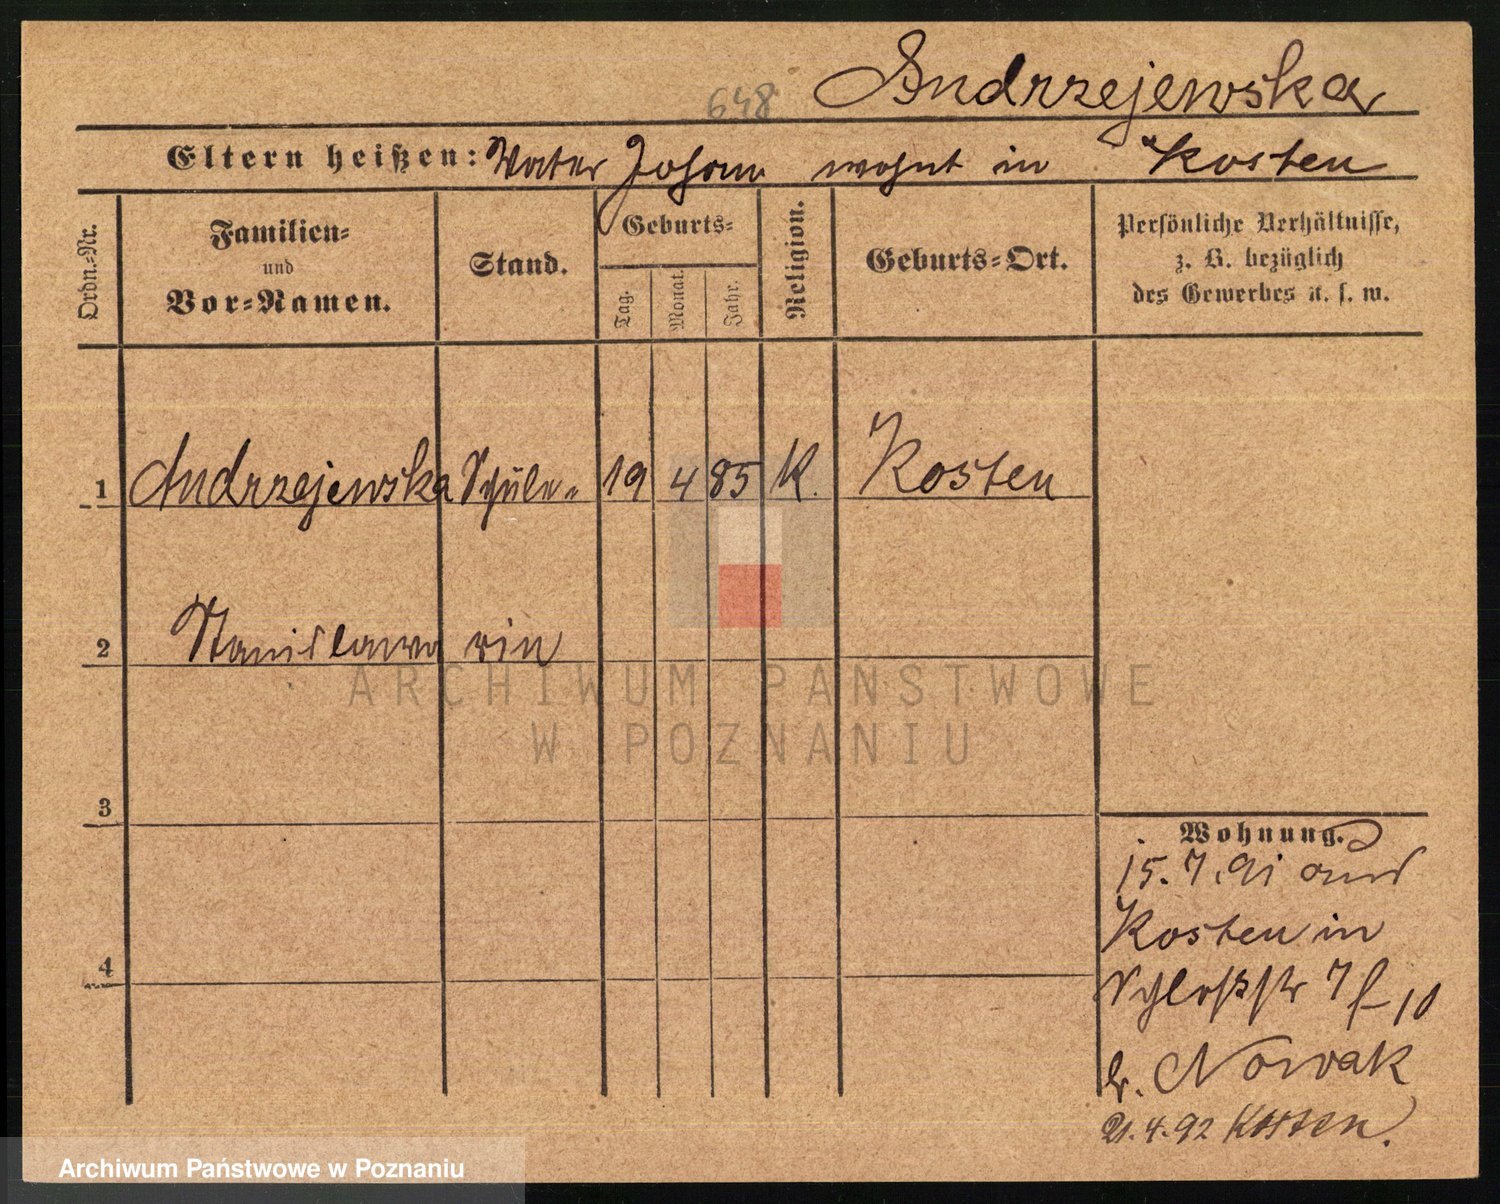 Andrzejewska
648
Eltern heißen: Vater Johann wohnt in Kosten
Ordn.-Nr.
Familien-
und
Vor-Namen.
Stand.
Geburts-
Tag.
Monat.
Jahr.
Religion.
Geburts-Ort.
Persönliche Verhältnisse,
z. B. bezüglich
des Gewerbes u. s. w.
1 Andrzejewska Schüle- 19 4 85 K. Kosten
2 Stanislawa rin
3
4
ARCHIWUM PAŃSTWOWE
W POZNANIU
Wohnung.
15.7.91 aus
Kosten in
Schloßstr 7 10
b. Nowak
21.4.92 Kosten.
Archiwum Państwowe w Poznaniu